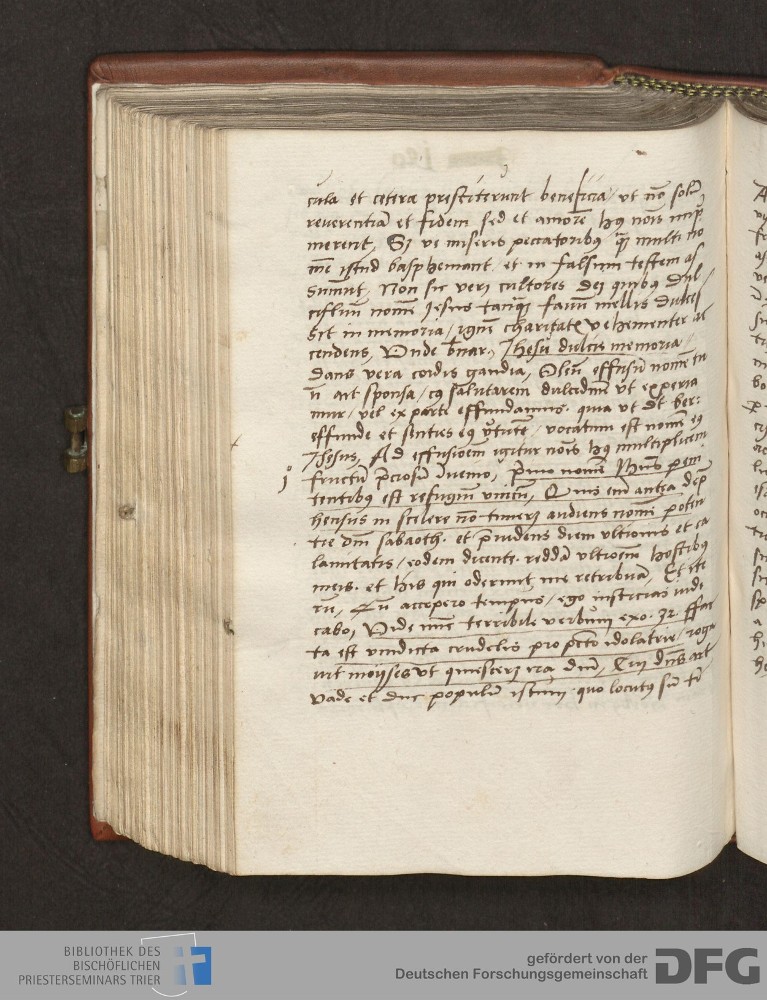 cula et cetera prestiterunt beneficia / ut nō solū
reverentiā et fidem sed et amorē hꝯ nōis
merent, Sz ve miseris peccatoribꝯ qꝫ multi no
mē istud basphemant. et in falsum testem as
sumūt, Non sic veri cultores dei quibꝯ dul
cissimū nomē Jesus tanqꝫ favū mellis dulces
sit in memoria / ignē charitatis vehementer ac
cendens, Unde bnar. Jhesu dulcis memoria
dans vera cordis gaudia, Oleū effusū nomē tu
ū ait sponsa / cꝯ salutarem dulcedinē ut experia
mur / vel ex parte effundamus. quia ut dt ber:
effunde et senties eꝯ v̄tutē / vocatum est nomē eꝯ
Jhesus, Ad effusioēm igitur nōis hꝯ multiplicem
1° fructū p̄ciosū īvenio, p̄mo nomē Jhūs peni
tentibꝯ est refugiū unicū, Quis eni antea dep̄
hensus in scelere nō timeret audiens nomē poten
tie dn̄i sabaoth. et prudens diem ultionis et ca
lamitatis / eodem dicente. reddā ultionem hostibꝯ
meis. et his qui oderunt me retribuā, Et ite
rū, Cū accepero tempus / ego iusticias iudi
cabo, Vide nūc terribile verbum exo. 32. ffac
ta est vindicta crudelis pro pctō idolatrie / roga
vit moyses ut quiesceret ira dn̄i, Cui dn̄s ait
vade et duc populū istum quo locutꝯ sū ti
BIBLIOTHEK DES
BISCHÖFLICHEN
PRIESTERSEMINARS TRIER
gefördert von der
Deutschen Forschungsgemeinschaft DFG